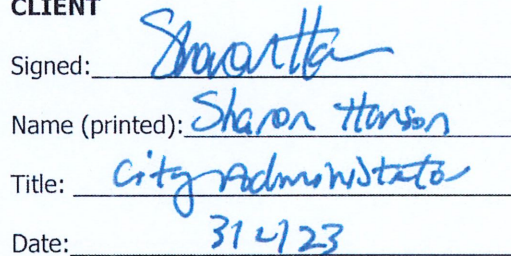 CLIENT
Signed: Sharon Han
Name (printed): Sharon Hanson
Title: City Administrator
Date: